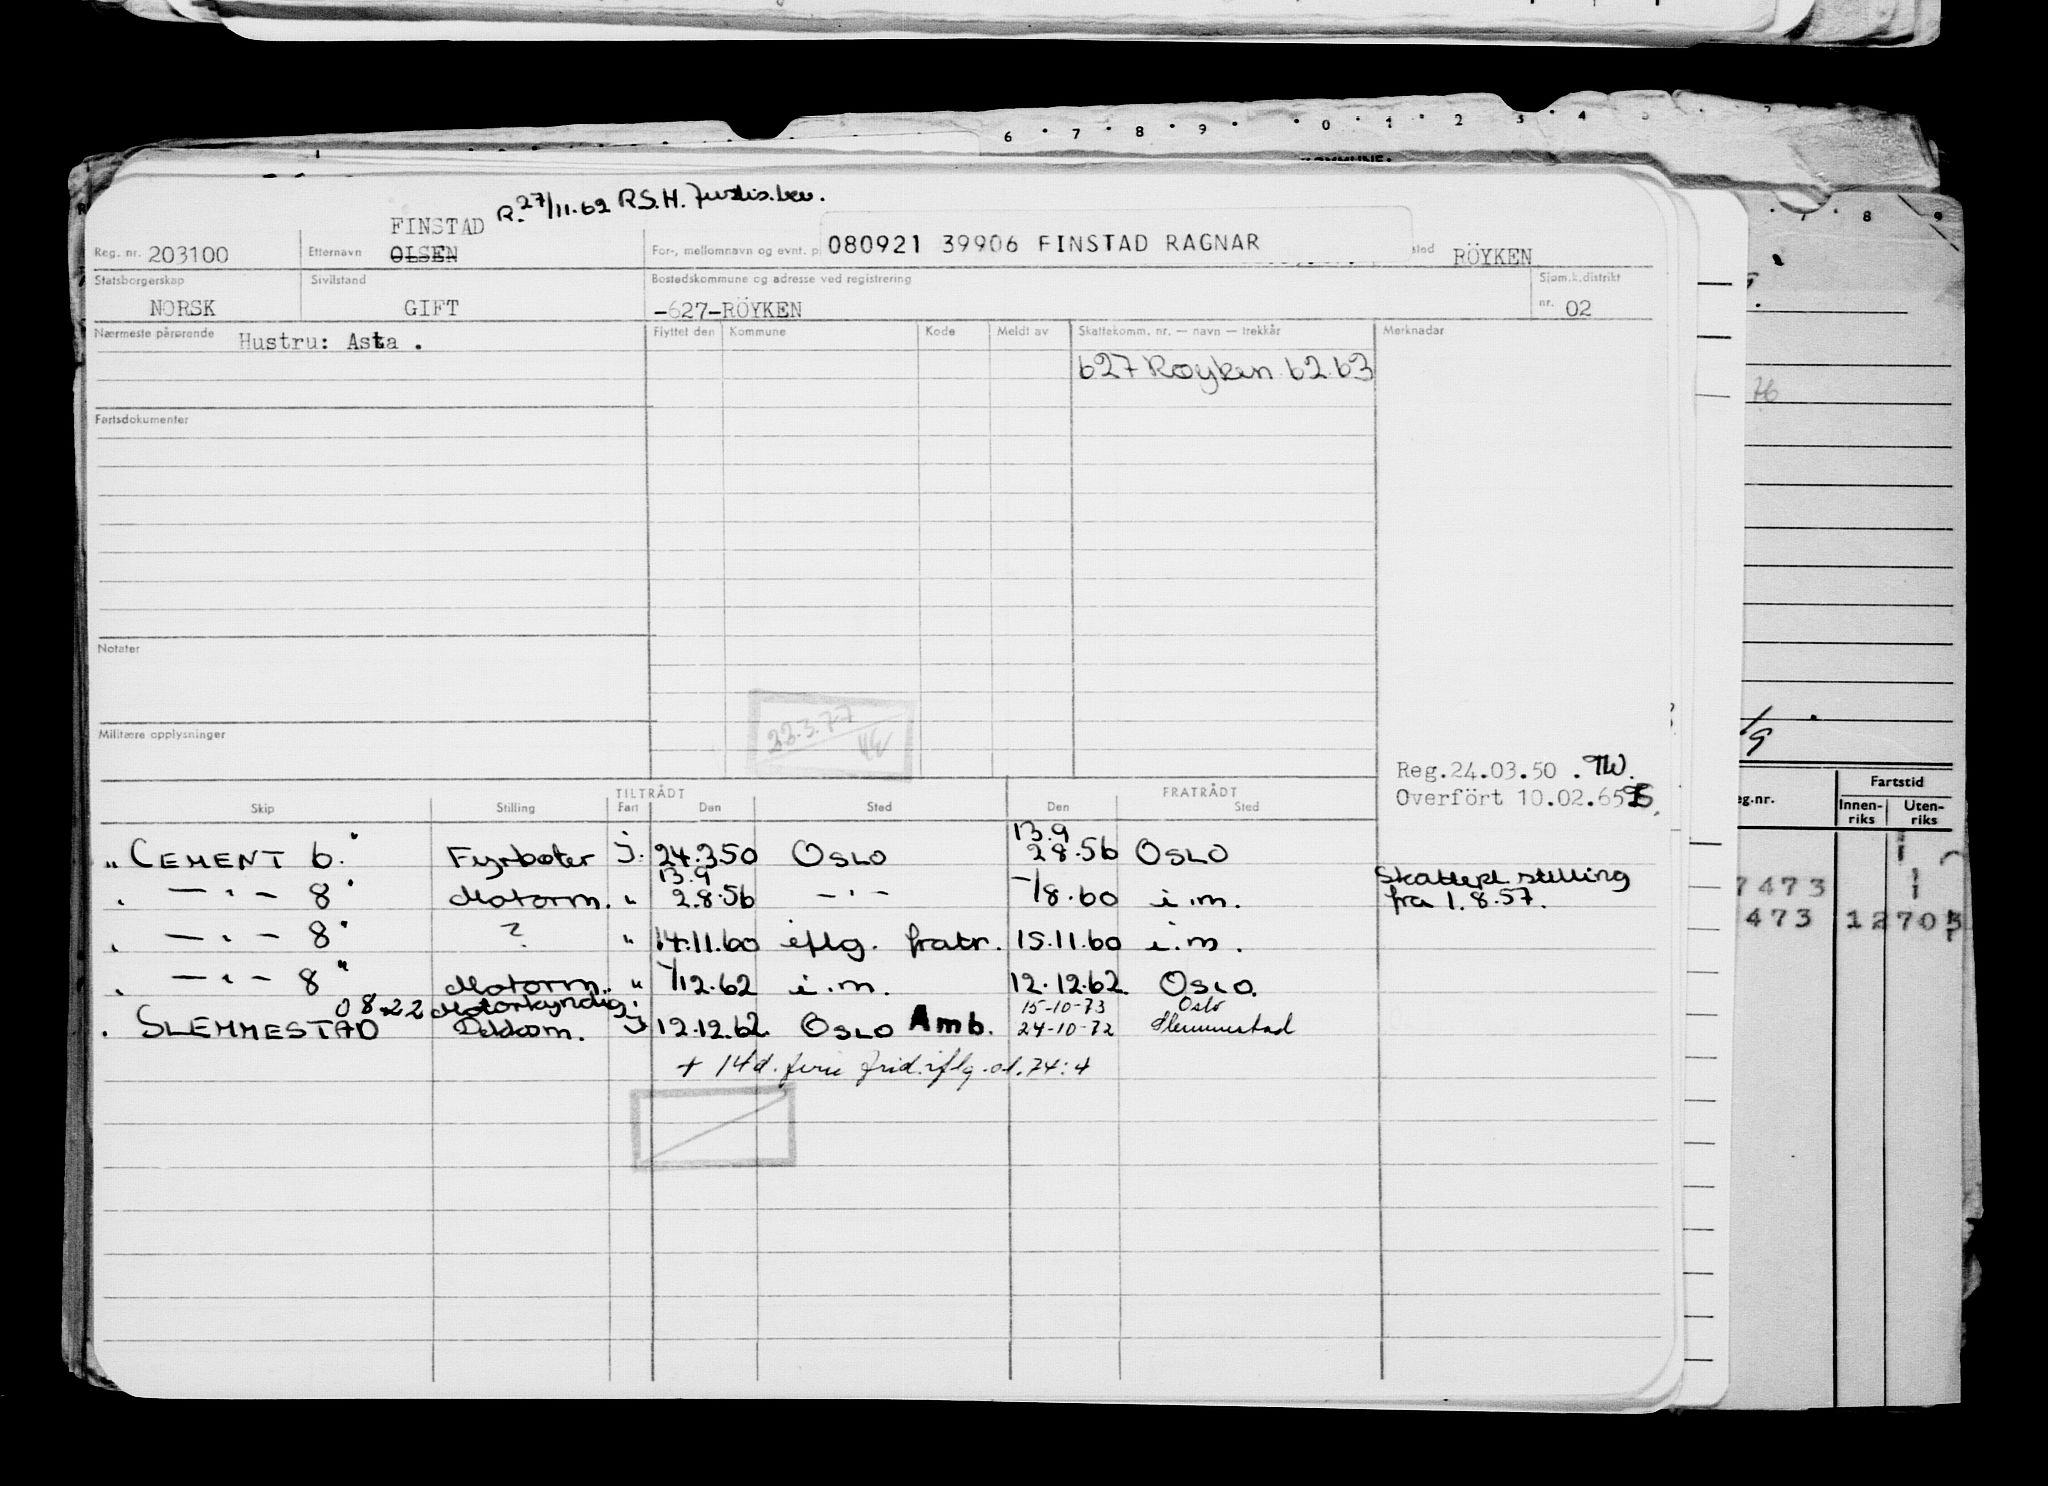 6 · 7 · 8 · 9 · · 0 · 1 · 2 3 4 5
R. 27/11.62 R.S.H. Justis.bev.
FINSTAD
Reg. nr. 203100 Etternavn OLSEN For-, mellomnavn og evnt. p 080921 39906 FINSTAD RAGNAR sted RÖYKEN
Statsborgerskap Sivilstand Bostedskommune og adresse ved registrering Sjøm.k.distrikt
NORSK GIFT -627-RÖYKEN nr. 02
Nærmeste pårørende Hustru: Asta . Flyttet den Kommune Kode Meldt av Skattekomm. nr. — navn — trekkår Merknader
627 Røyken 62 63
Fartsdokumenter
Notater
22.3.77
Militære opplysninger
Reg.24.03.50 . TW.
Overfört 10.02.65
TILTRÅDT FRATRÅDT
Skip Stilling Fart Den Sted Den Sted
13.9
" CEMENT 6." Fyrbøter J. 24.3.50 OSLO 28.56 OSLO
13.9 Skattepl. stilling
" — " — 8" Motorm. " 2.8.56 — " — -/8.60 i.m. fra 1.8.57.
" — " — 8" ? " 14.11.60 iflg. fratr. 15.11.60 i.m.
" — " — 8" Motorm. " -/12.62 i.m. 12.12.62 OSLO.
0822 Motorkyndig 15-10-73 Oslo
" SLEMMESTAD Dekksm. J 12.12.62 OSLO Amb. 24-10-72 Slemmestad
+ 14 d. ferie frid. iflg. ol. 74:4
eg.nr. Fartstid
Innen-riks Uten-riks
7473
473 12703